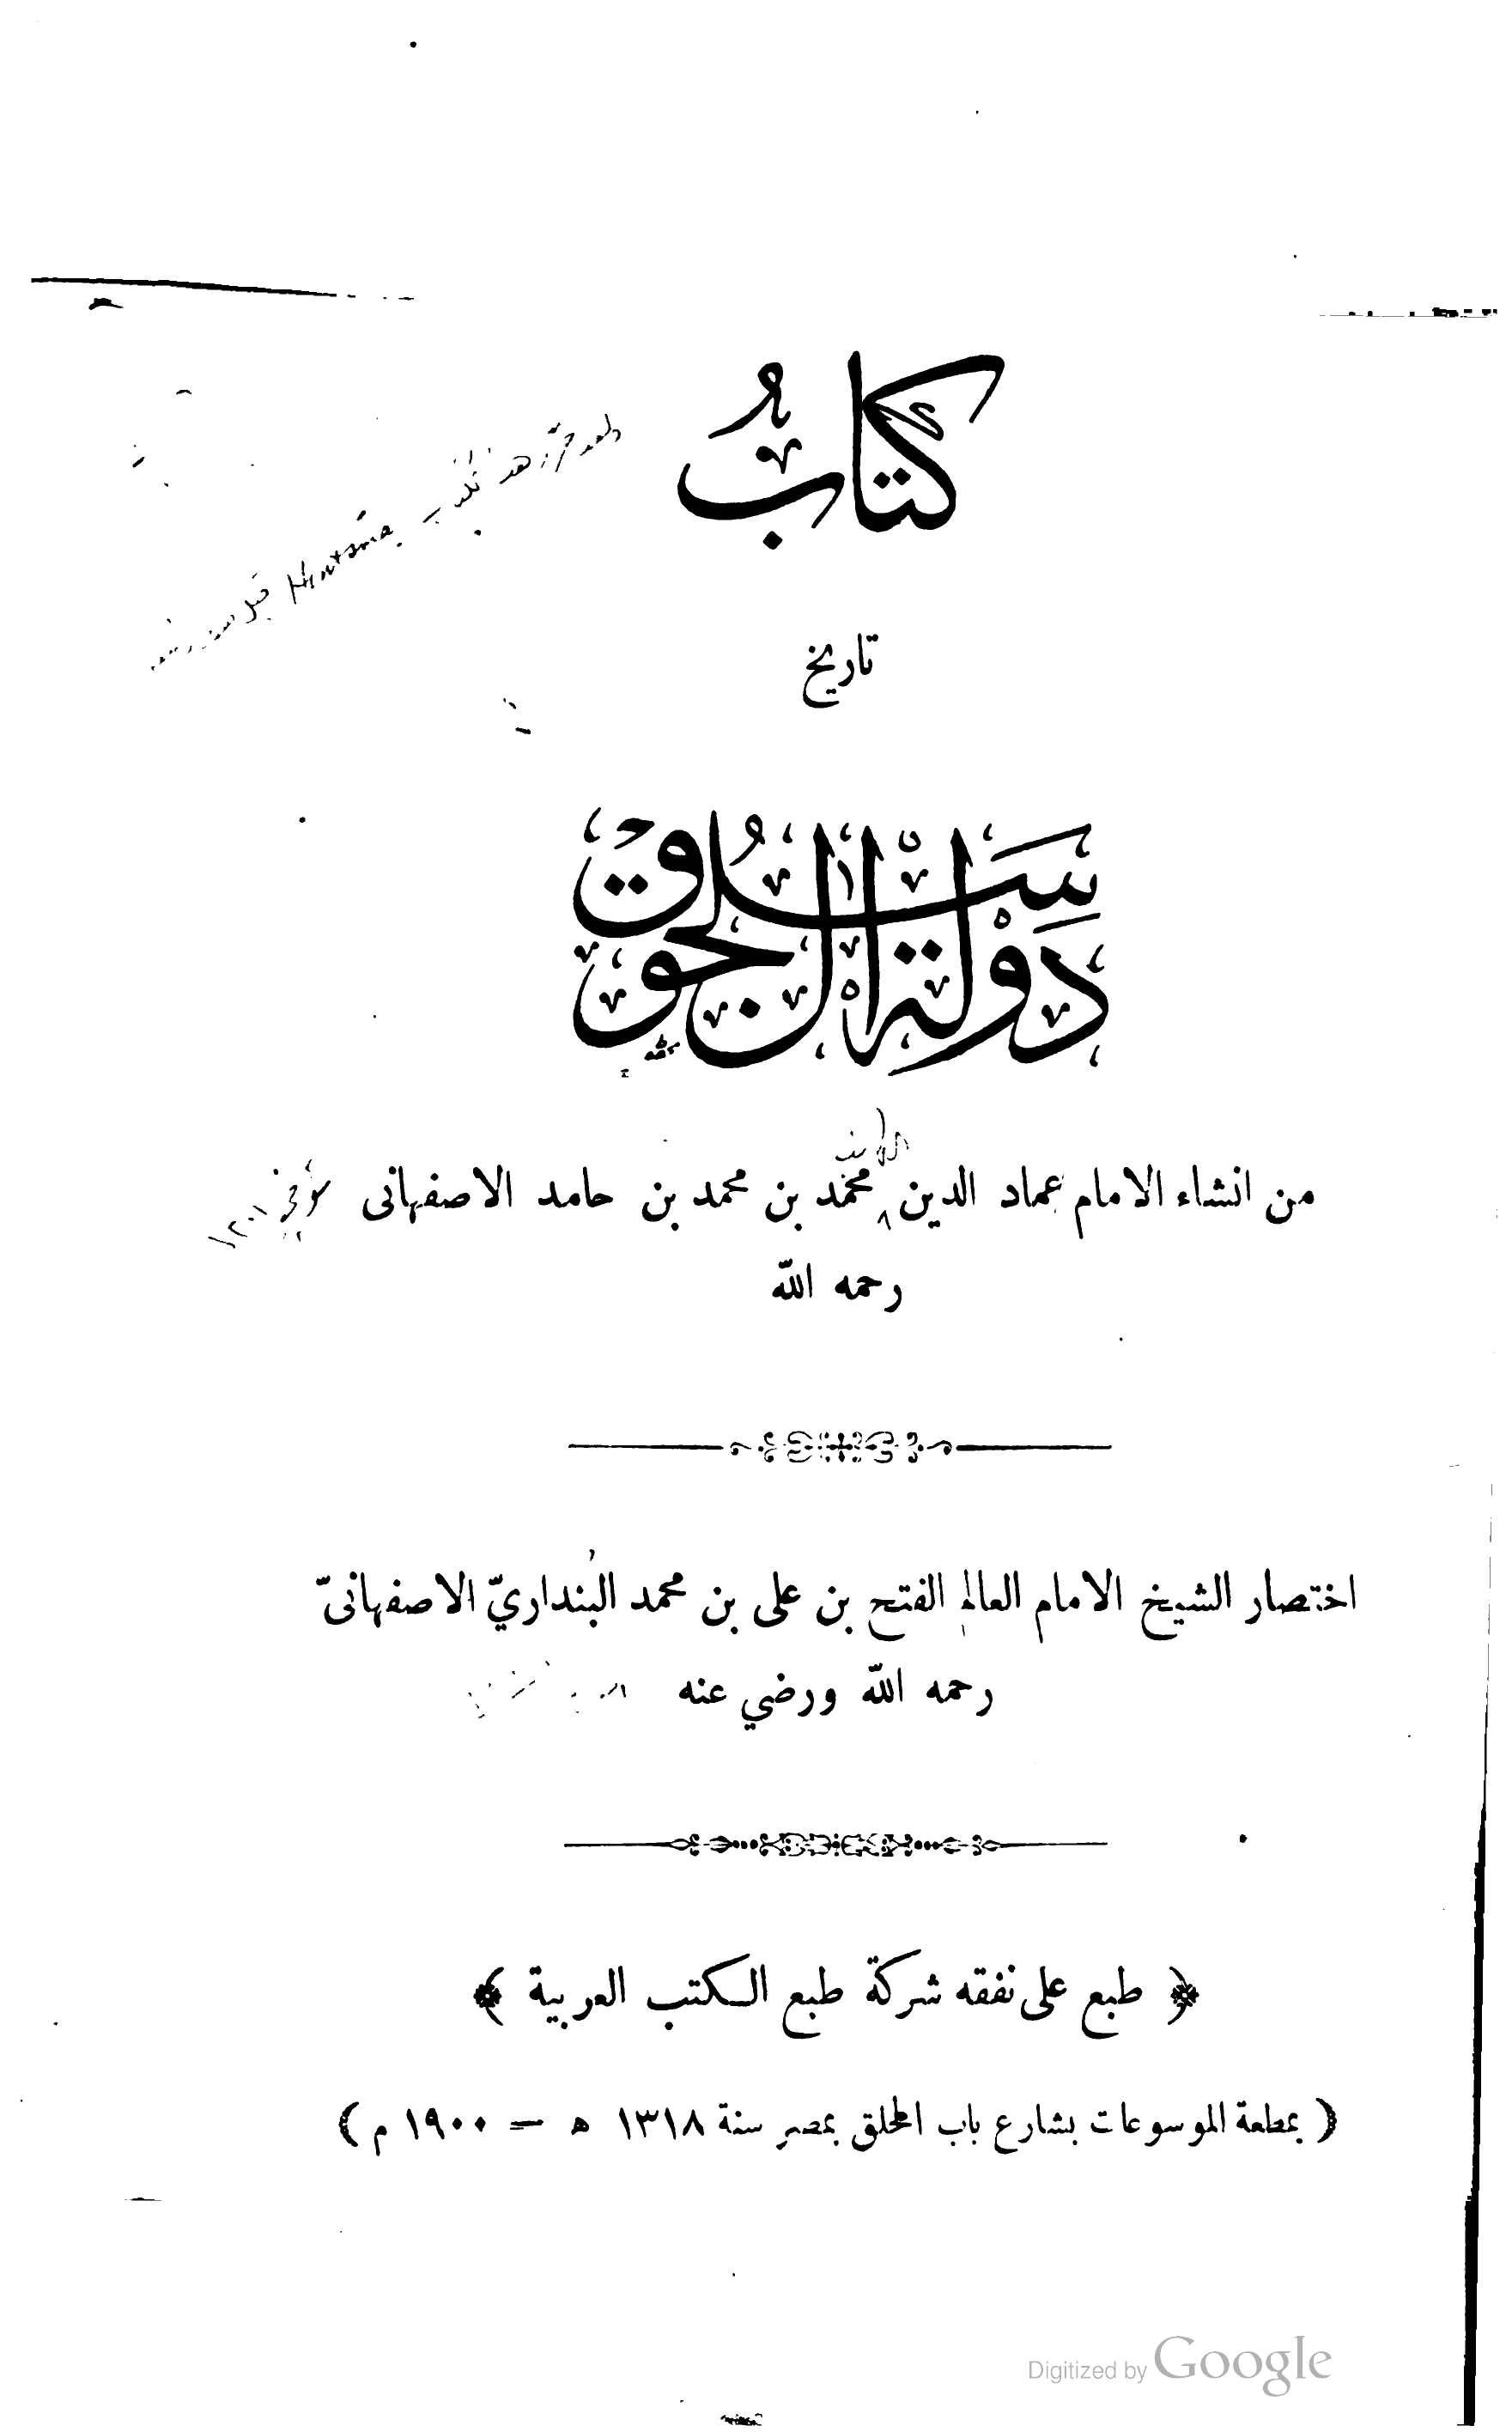 كتابُ
تاريخ
دولة آل سلجوق
من انشاء الامام عماد الدين محمّد بن محمد بن حامد الاصفهانى
رحمه اللّه
اختصار الشيخ الامام العالم الفتح بن على بن محمد البُنداريّ الاصفهانىّ
رحمه اللّه ورضي عنه
﴿ طبع على نفقه شركة طبع الكتب العربية ﴾
( بمطعة الموسوعات بشارع باب الخلق بمصر سنة ١٣١٨ ه — ١٩٠٠ م )
Digitized by Google